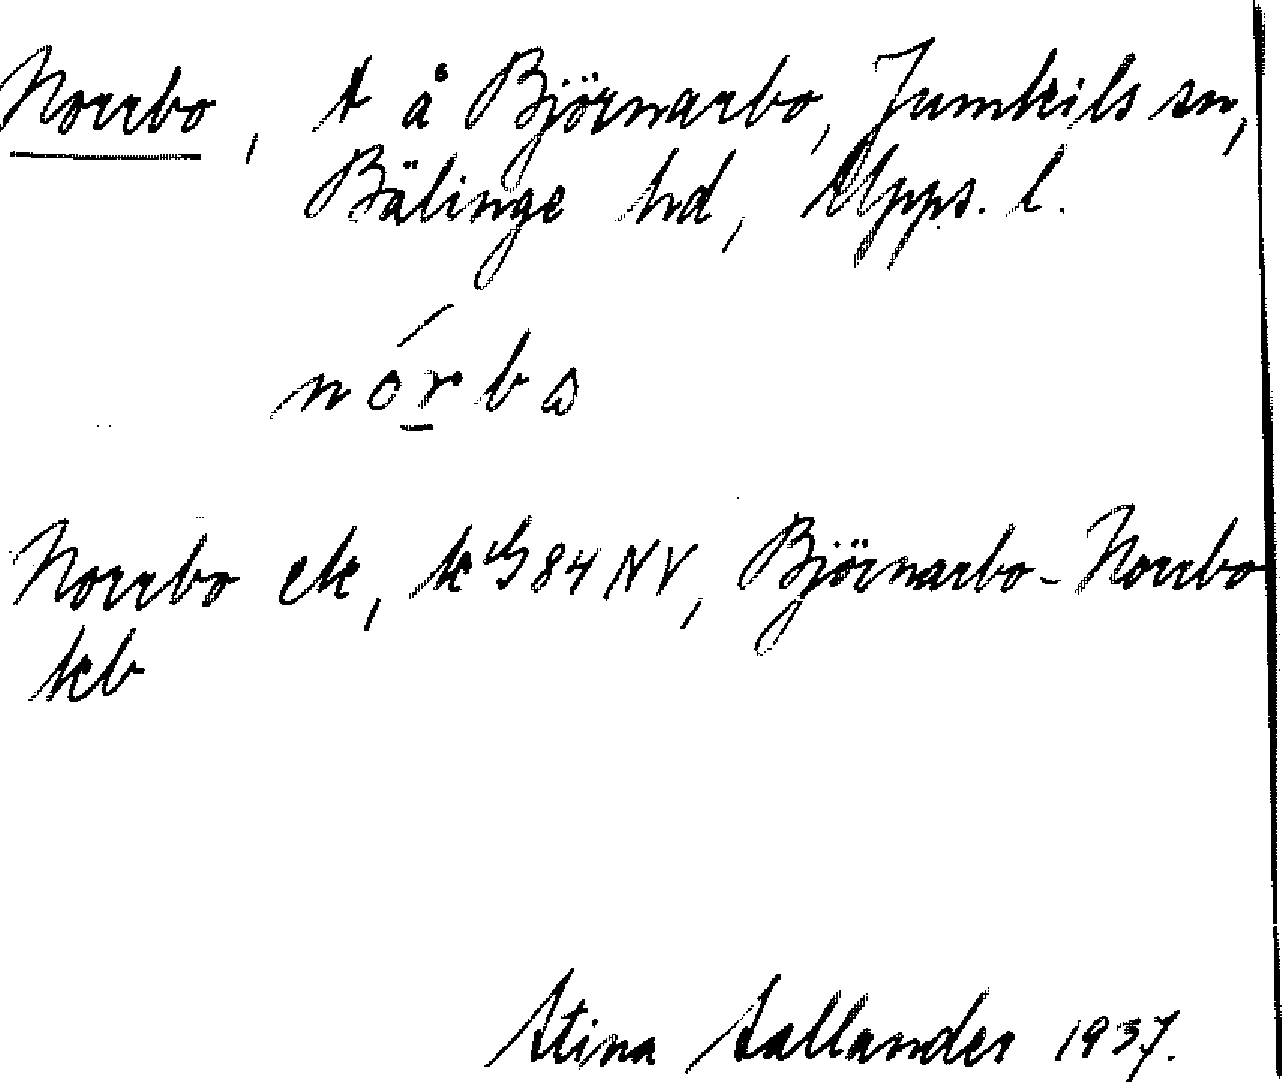 Norrbo, t å Björnarbo, Jumkils sn,
Bälinge hd, Upps. l.
nórba
Norrbo ek, k 84 NV, Björnarbo-Norrbo
kb
Stina Sallander 1937.